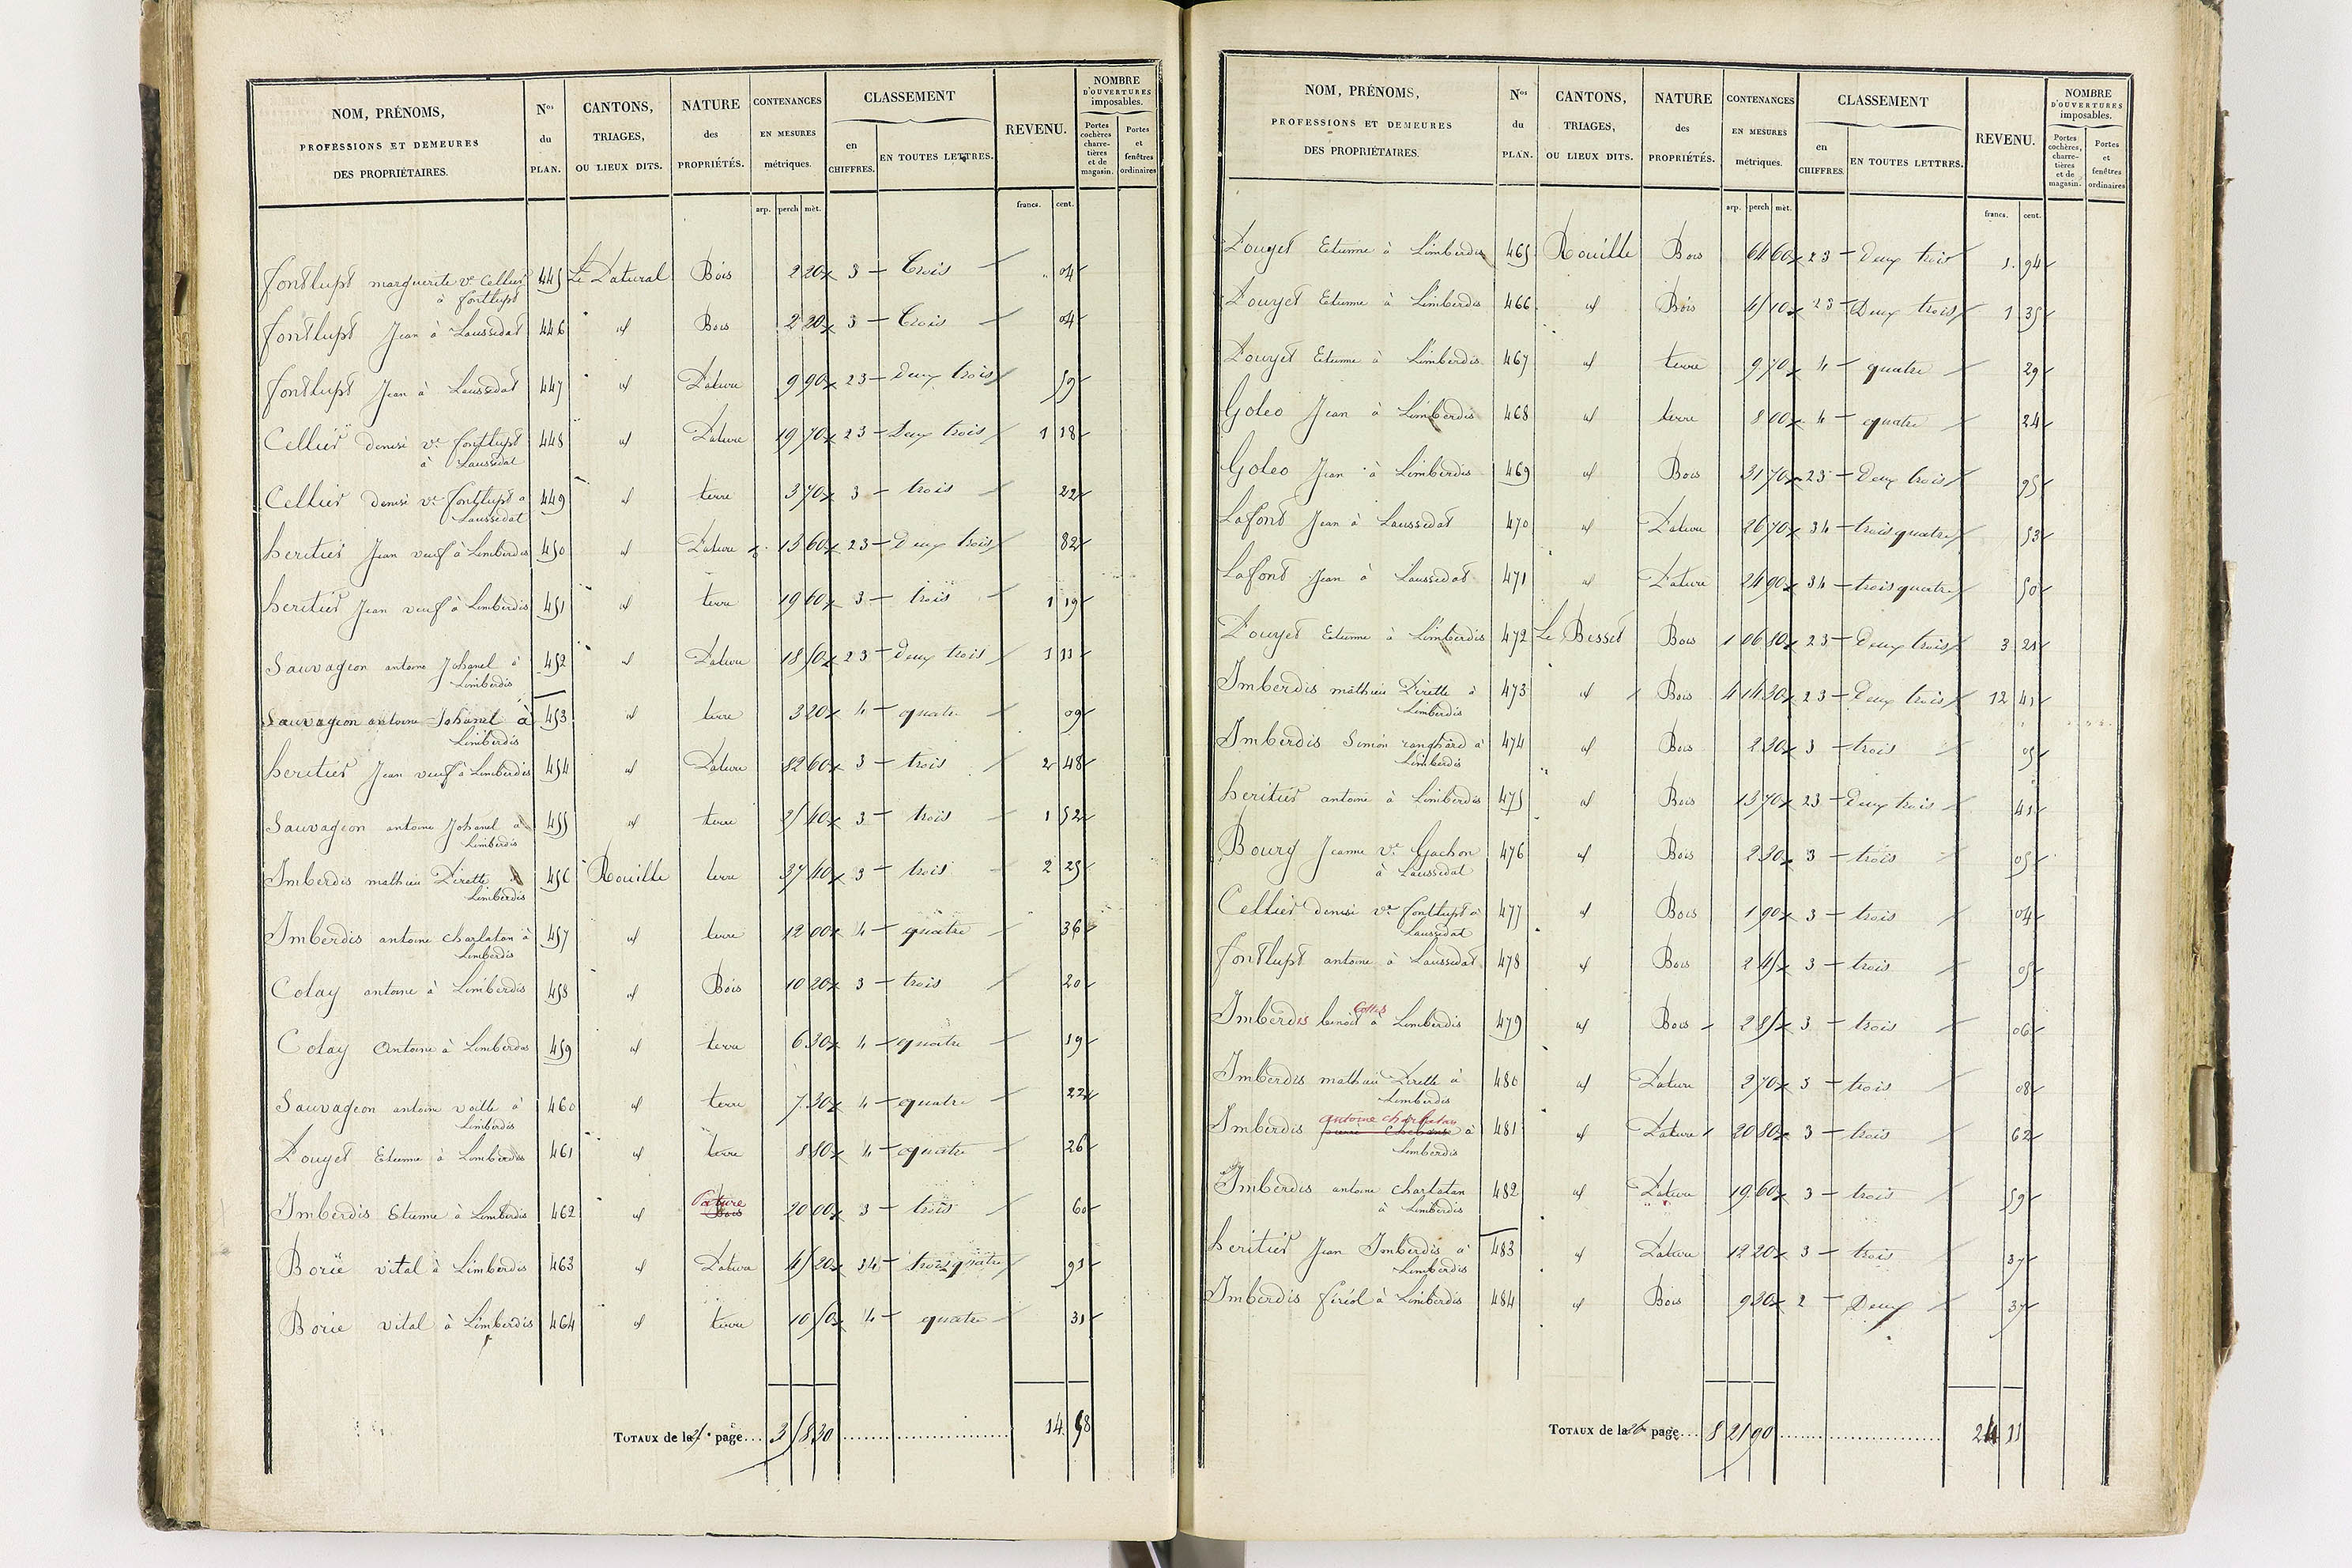 NOM, PRÉNOMS, PROFESSIONS ET DEMEURES DES PROPRIÉTAIRES. Nos du PLAN. CANTONS, TRIAGES, OU LIEUX DITS. NATURE des PROPRIÉTÉS. CONTENANCES EN MESURES métriques. CLASSEMENT en CHIFFRES. EN TOUTES LETTRES. REVENU. NOMBRE D'OUVERTURES imposables. Portes cochères charretières et de magasin. Portes et fenêtres ordinaires
arp. perch mèt. francs. cent.
fontlupt marguerite ve Cellier 445 Le Patural Bois 2 20 3 - Trois 04
à fontlupt
fontlupt Jean à Laussedat 446 id Bois 2 20 3 - Trois 04
fontlupt Jean à Laussedat 447 id Pature 9 90 23 - Deux trois 59
Cellier denise ve fontlupt 448 id Pature 19 70 23 - Deux trois 1 18
à Laussedat
Cellier denise ve fontlupt a 449 id terre 3 70 3 - trois 22
Laussedat
heritier Jean veuf à Limberdis 450 id Pature 13 60 23 - Deux trois 82
heritier Jean veuf à Limberdis 451 id terre 19 60 3 - trois 1 19
Sauvageon antoine Johanel à 452 id Pature 18 50 23 - Deux trois 1 11
Limberdis
Sauvageon antoine Johanel à 453 id terre 3 20 4 - quatre 09
Limberdis
heritier Jean veuf à Limberdis 454 id Pature 82 60 3 - trois 2 48
Sauvageon antoine Johanel à 455 id terre 25 40 3 - trois 1 52
Limberdis
Imberdis mathieu Pirette à 456 Rouille terre 37 40 3 - trois 2 25
Limberdis
Imberdis antoine charlatan à 457 id terre 12 00 4 - quatre 36
Limberdis
Colay antoine à Limberdis 458 id Bois 10 20 3 - trois 20
Colay Antoine à Limberdis 459 id terre 6 30 4 - quatre 19
Sauvageon antoine voille à 460 id terre 7 30 4 - quatre 22
Limberdis
Pouyet Etienne à Limberdis 461 id terre 8 80 4 - quatre 26
Pature
Imberdis Etienne à Limberdis 462 id Bois 20 00 3 - trois 60
Borie vital à Limberdis 463 id Pature 45 20 34 - trois quatre 91
Borie vital à Limberdis 464 id terre 10 50 4 - quatre 31
TOTAUX de la 25e page... 3 58 30 14 58
NOM, PRÉNOMS, PROFESSIONS ET DEMEURES DES PROPRIÉTAIRES. Nos du PLAN. CANTONS, TRIAGES, OU LIEUX DITS. NATURE des PROPRIÉTÉS. CONTENANCES EN MESURES métriques. CLASSEMENT en CHIFFRES. EN TOUTES LETTRES. REVENU. NOMBRE D'OUVERTURES imposables. Portes cochères, charretières et de magasin. Portes et fenêtres ordinaires
arp. perch mèt. francs. cent.
Pouyet Etienne à Limberdis 465 Rouille Bois 64 60 23 - Deux trois 1 94
Pouyet Etienne à Limberdis 466 id Bois 45 10 23 - Deux trois 1 35
Pouyet Etienne à Limberdis 467 id terre 9 70 4 - quatre 29
Goleo Jean à Limberdis 468 id terre 8 00 4 - quatre 24
Goleo Jean à Limberdis 469 id Bois 31 70 23 - Deux trois 95
Lafont Jean à Laussedat 470 id Pature 26 70 34 - trois quatre 53
Lafont Jean à Laussedat 471 id Pature 24 90 34 - trois quatre 50
Pouyet Etienne à Limberdis 472 Le Besset Bois 1 06 80 23 - Deux trois 3 21
Imberdis mathieu Pirette à 473 id Bois 4 14 30 23 - Deux trois 12 41
Limberdis
Imberdis Simon à 474 id Bois 2 30 3 - trois 05
Limberdis
heritier antoine à Limberdis 475 id Bois 13 70 23 - Deux trois 41
Boury Jeanne ve Gachon 476 id Bois 2 30 3 - trois 05
à Laussedat
Cellier denise ve fontlupt à 477 id Bois 1 90 3 - trois 04
Laussedat
fontlupt antoine à Laussedat 478 id Bois 2 45 3 - trois 05
Imberdis benoit à Limberdis 479 id Bois 2 85 3 - trois 06
Imberdis mathieu Pirette à 480 id Pature 2 70 3 - trois 08
Limberdis
antoine charlatan
Imberdis à 481 id Pature 20 80 3 - trois 62
Limberdis
Imberdis antoine charlatan 482 id Pature 19 60 3 - trois 59
à Limberdis
heritier Jean Imberdis à 483 id Pature 12 20 3 - trois 37
Limberdis
Imberdis firéol à Limberdis 484 id Bois 9 30 2 - Deux 37
TOTAUX de la 26e page... 8 21 90 24 11